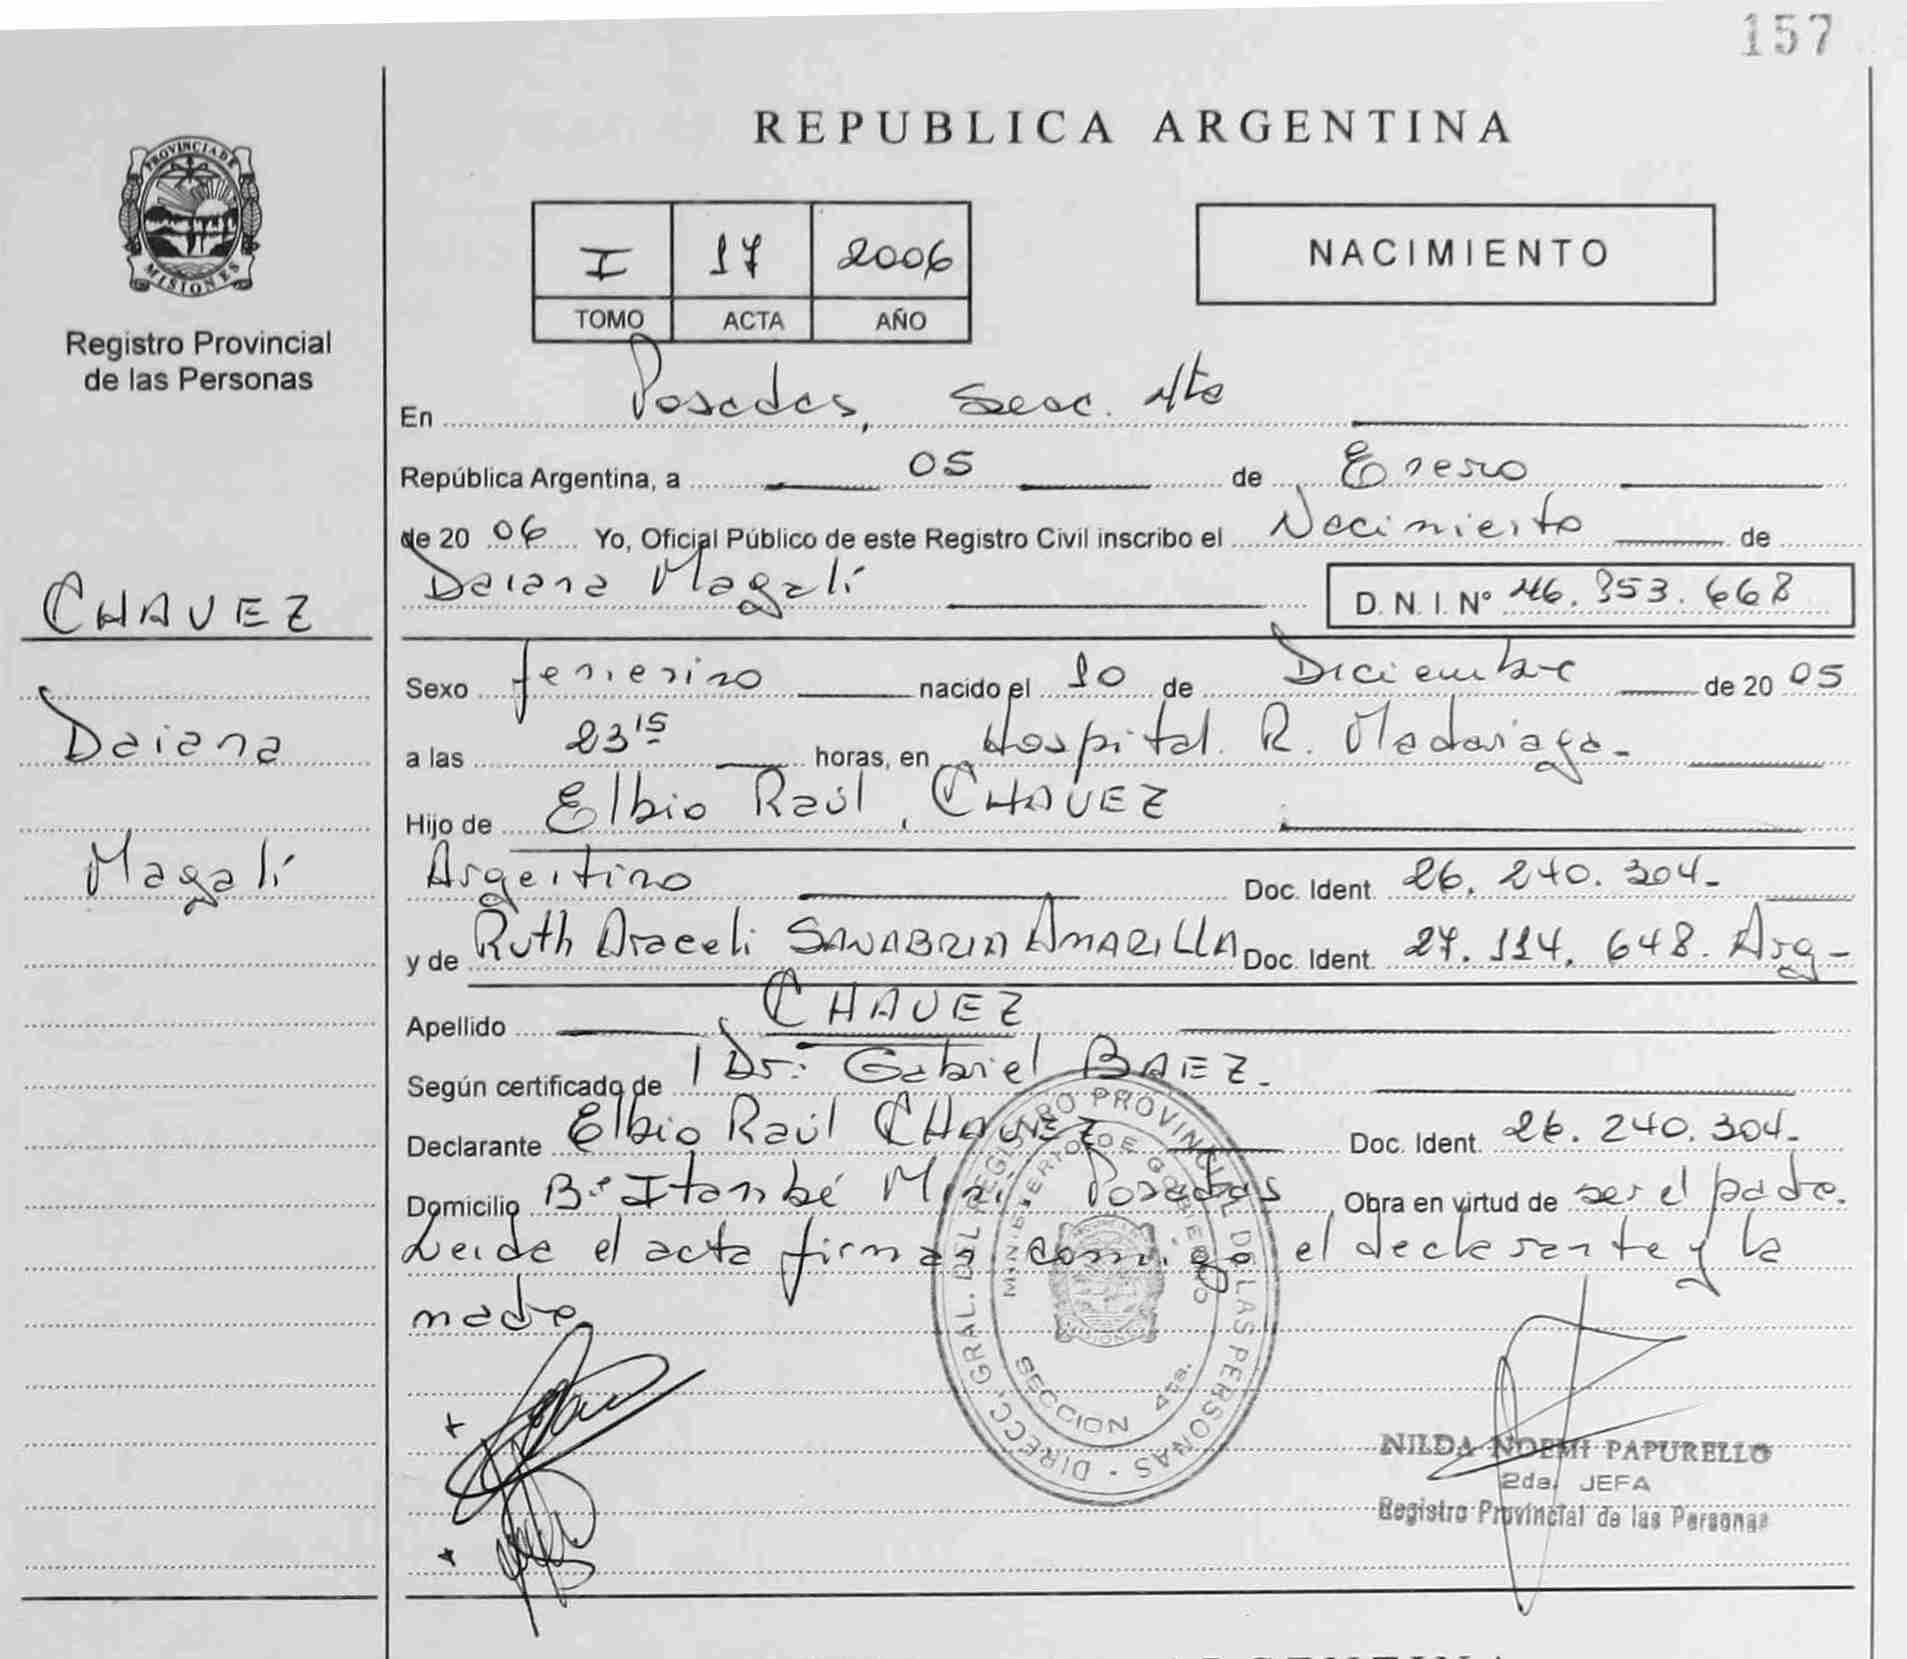 157
PROVINCIA DE
MISIONES
Registro Provincial
de las Personas
CHAVEZ
Daiana
Magalí
REPUBLICA ARGENTINA
I 17 2006
TOMO ACTA AÑO
NACIMIENTO
En Posadas, Secc. 4ta
República Argentina, a 05 de Enero
de 20 06 Yo, Oficial Público de este Registro Civil inscribo el Nacimiento de
Daiana Magalí D. N. I. N° 46. 353. 668
Sexo femenino nacido el 10 de Diciembre de 20 05
a las 23 15 horas, en Hospital. R. Madariaga-
Hijo de Elbio Raúl, CHAVEZ
Argentino Doc. Ident. 26. 240. 304-
y de Ruth Araceli SANABRIA AMARILLA Doc. Ident. 27. 114. 648. Arg-
Apellido CHAVEZ
Según certificado de Dr: Gabriel BAEZ-
Declarante Elbio Raúl CHAVEZ Doc. Ident. 26. 240. 304-
Domicilio B° Itambé Miní Posadas Obra en virtud de ser el padre.
Leida el acta firman conmigo el declarante y la
madre
DIRECC. GRAL. DEL REGISTRO PROVINCIAL DE LAS PERSONAS
MINISTERIO DE GOBIERNO
SECCION 4ta.
NILDA NOEMI PAPURELLO
2da. JEFA
Registro Provincial de las Personas